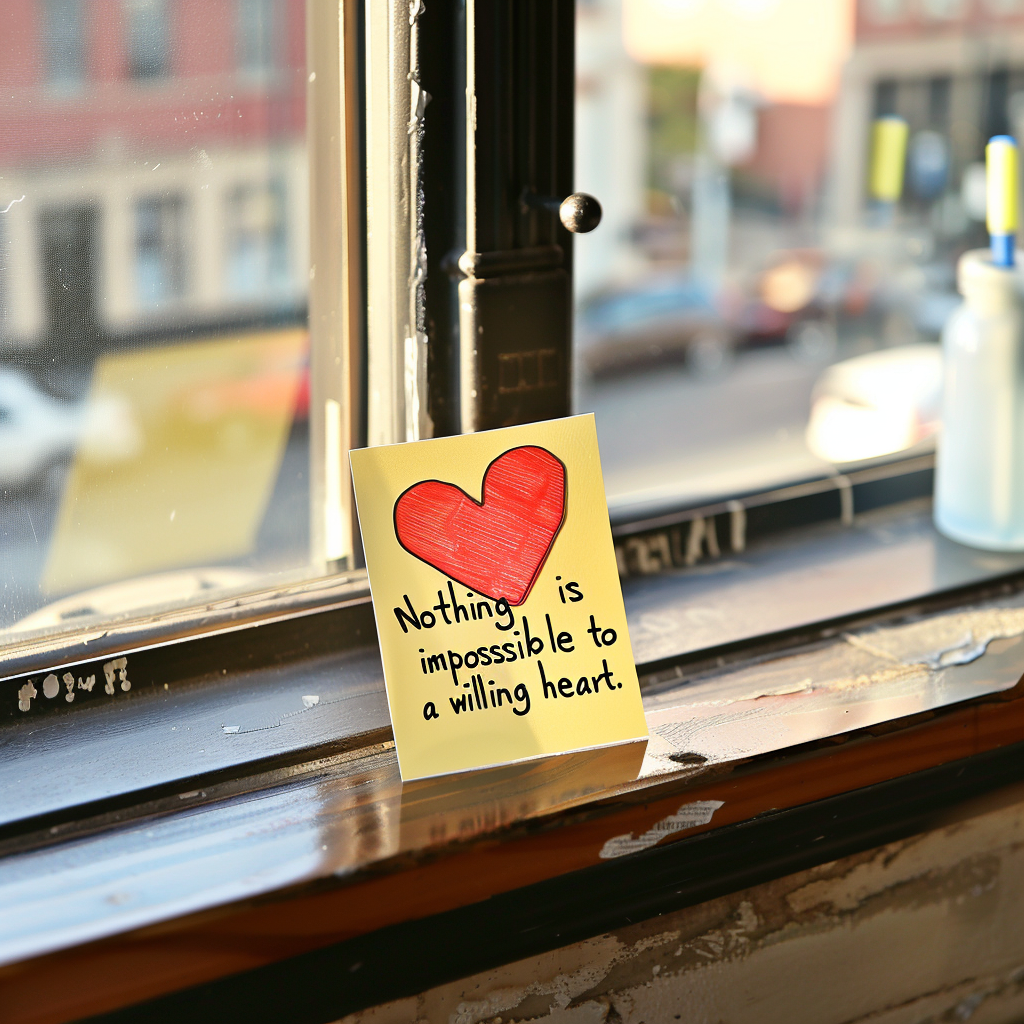 Nothing is
imposssible to
a willing heart.